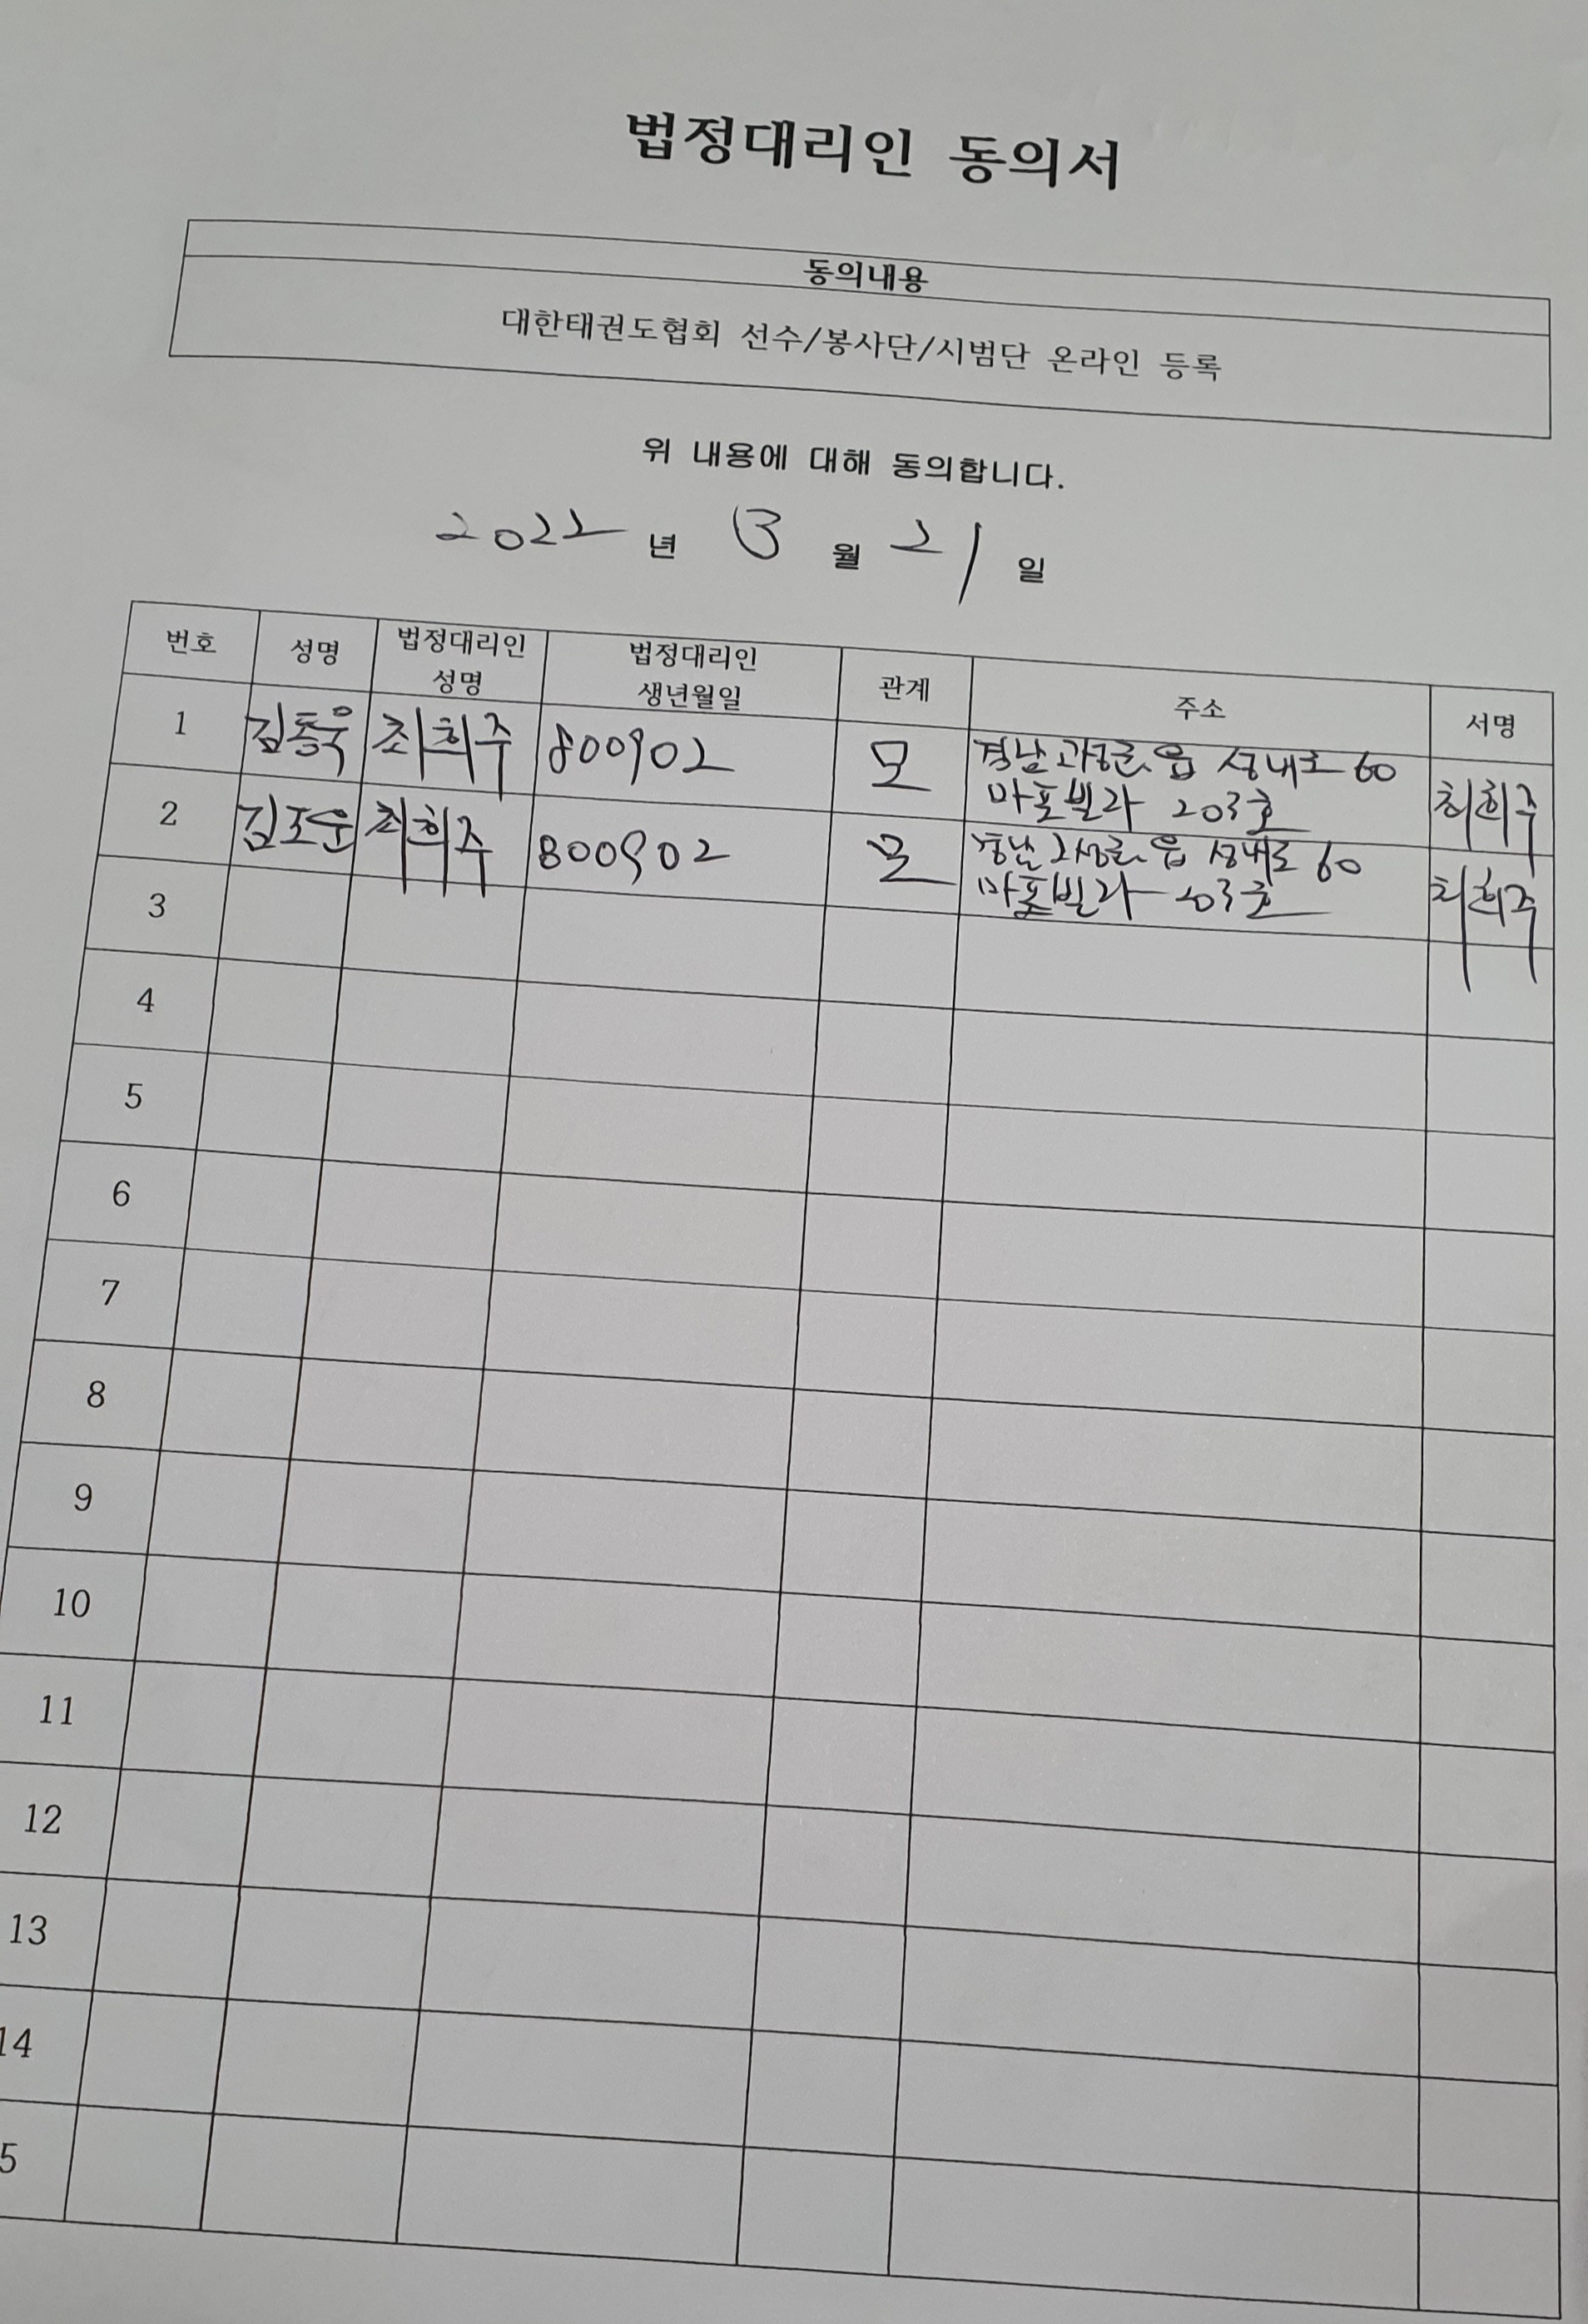 법정대리인 동의서
동의내용
대한태권도협회 선수/봉사단/시범단 온라인 등록
위 내용에 대해 동의합니다.
2022 년 3 월 21 일
번호 성명 법정대리인 성명 법정대리인 생년월일 관계 주소 서명
1 김동욱 최희주 800902 모 경남 고성군 읍 성내로 60
마포빌라 203호 최희주
2 최희주 800902 모 경남 고성군 읍 성내로 60
마포빌라 203호 최희주
3
4
5
6
7
8
9
10
11
12
13
14
5